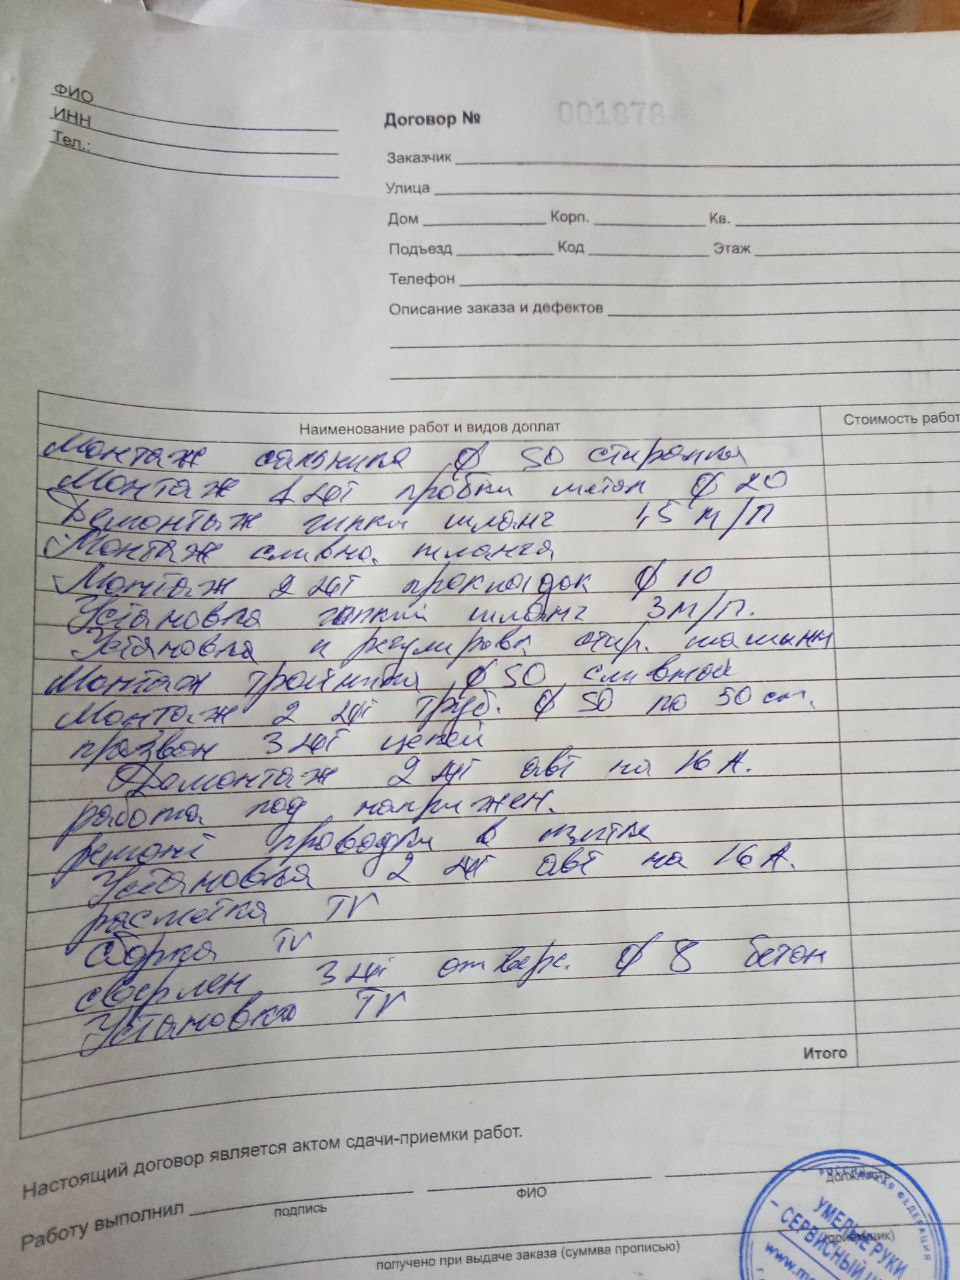 ФИО
ИНН
Тел.:
Договор № 001878
Заказчик
Улица
Дом Корп. Кв.
Подъезд Код Этаж
Телефон
Описание заказа и дефектов
Наименование работ и видов доплат Стоимость работ
Монтаж сальника ф 50 стиралка
Монтаж 1 шт пробки метал ф 20
Демонтаж гибкий шланг 1,5 м/п
Монтаж сливно. шланга
Монтаж 2 шт прокладок ф 10
Установка гибкий шланг 3м/п.
Установка и регулировк стир. машины
Монтаж тройника ф 50 сливной
Монтаж 2 шт труб. ф 50 по 50 см.
прозвон 3 шт цепей
Демонтаж 2 шт авт на 16 А.
работа под напряжен.
ремонт проводки в щитке
Установка 2 шт авт на 16 А.
разметка TV
сборка TV
сверлен 3 шт отверс. ф 8 бетон
Установка TV
Итого
Настоящий договор является актом сдачи-приемки работ.
Работу выполнил
подпись ФИО
получено при выдаче заказа (суммва прописью)
УМЕЛЫЕ РУКИ
СЕРВИСНЫЙ